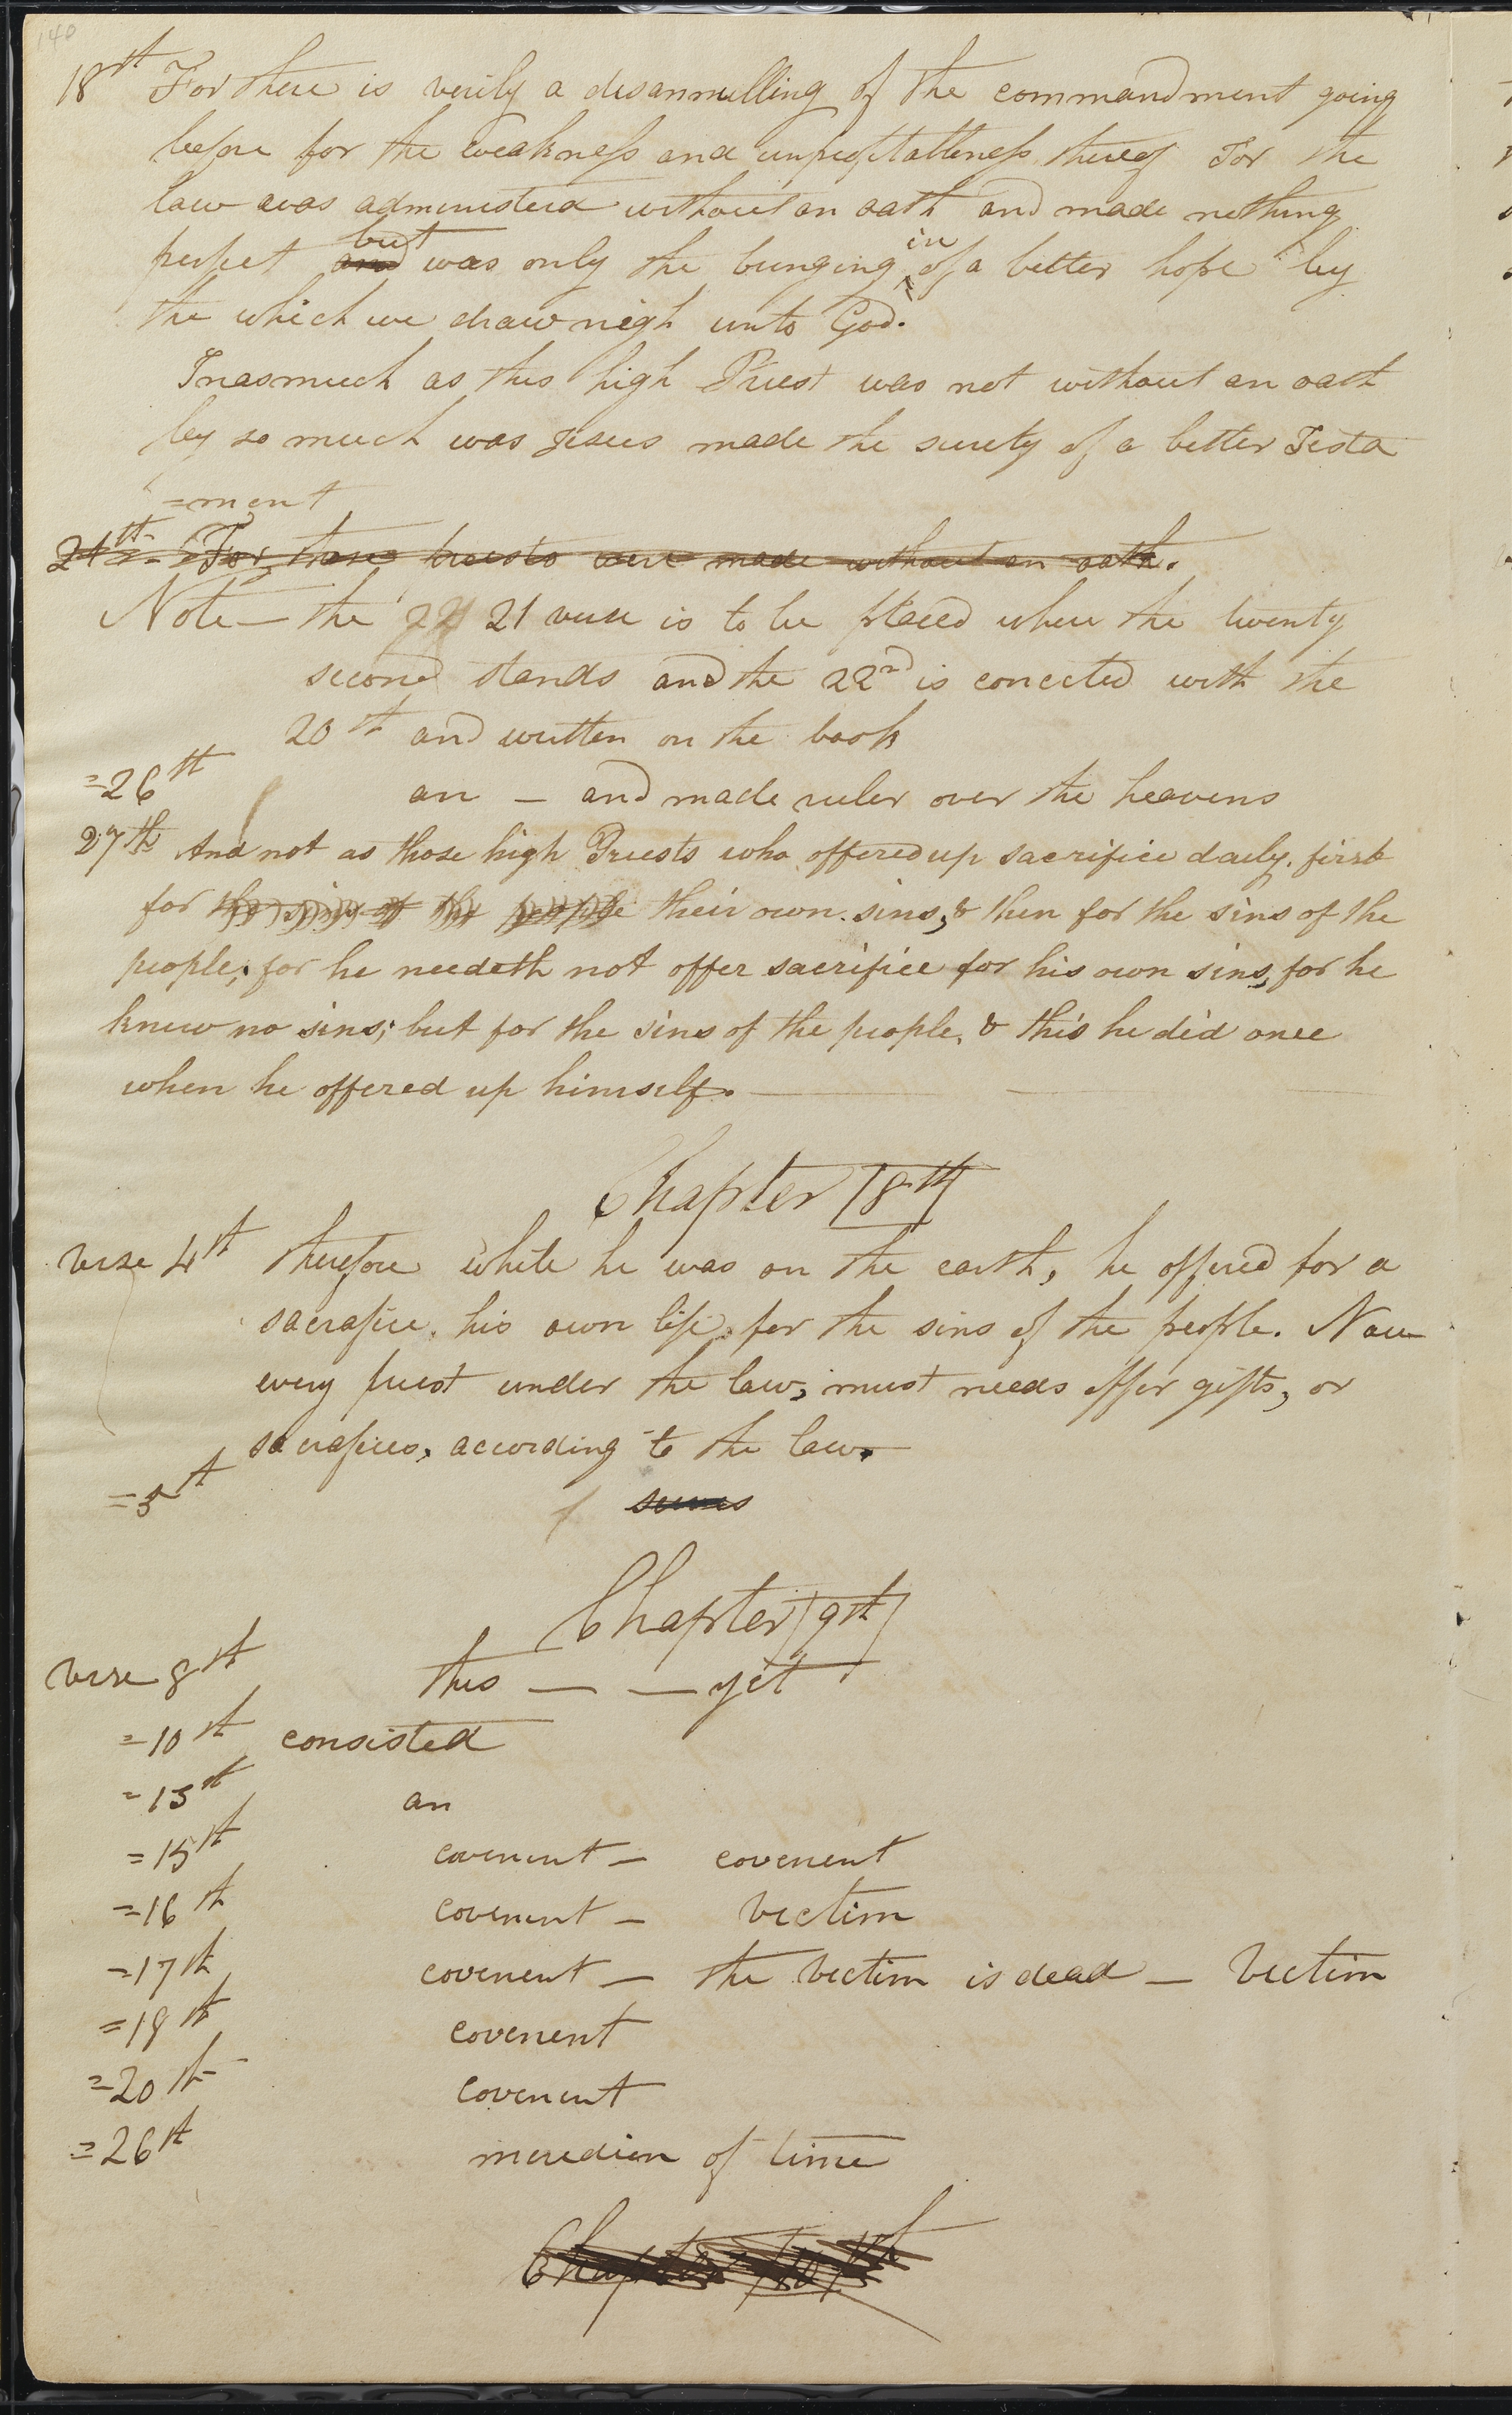 140
18th For there is verily a disannulling of the commandment going
before for the weakness and unprofitableness thereof For the
law was administerd without an oath and made nothing
perfect and but was only the bringing in of a better hope by
the which we draw nigh unto God.
Inasmuch as this high Priest was not without an oath
by so much was Jesus made the surety of a better Testa
=ment
21th For those priests were made without an oath.
Note — the 22 21 verse is to be placed where the twenty
second stands and the 22nd is conected with the
20th and written on the book
=26th an — and made ruler over the heavens
27th And not as those high Priests who offered up sacrifice daily. first
for the sins of the people their own sins, & then for the sins of the
people; for he needeth not offer sacrifice for his own sins, for he
knew no sins; but for the sins of the people, & this he did once
when he offered up himself. —
Chapter 8th
verse 4th therefore while he was on the earth, he offered for a
sacrafice, his own life, for the sins of the people. Now
every priest under the law, must needs offer gifts, or
sacrafices, according to the law.
=5th serves
Chapter 9th
verse 8th this — — yet
=10th consisted
=13th an
=15th covenent — covenent
=16th covenent — victim
=17th covenent — the victim is dead — victim
=18th covenent
=20th covenent
=26th meredien of time
Chapter 10th